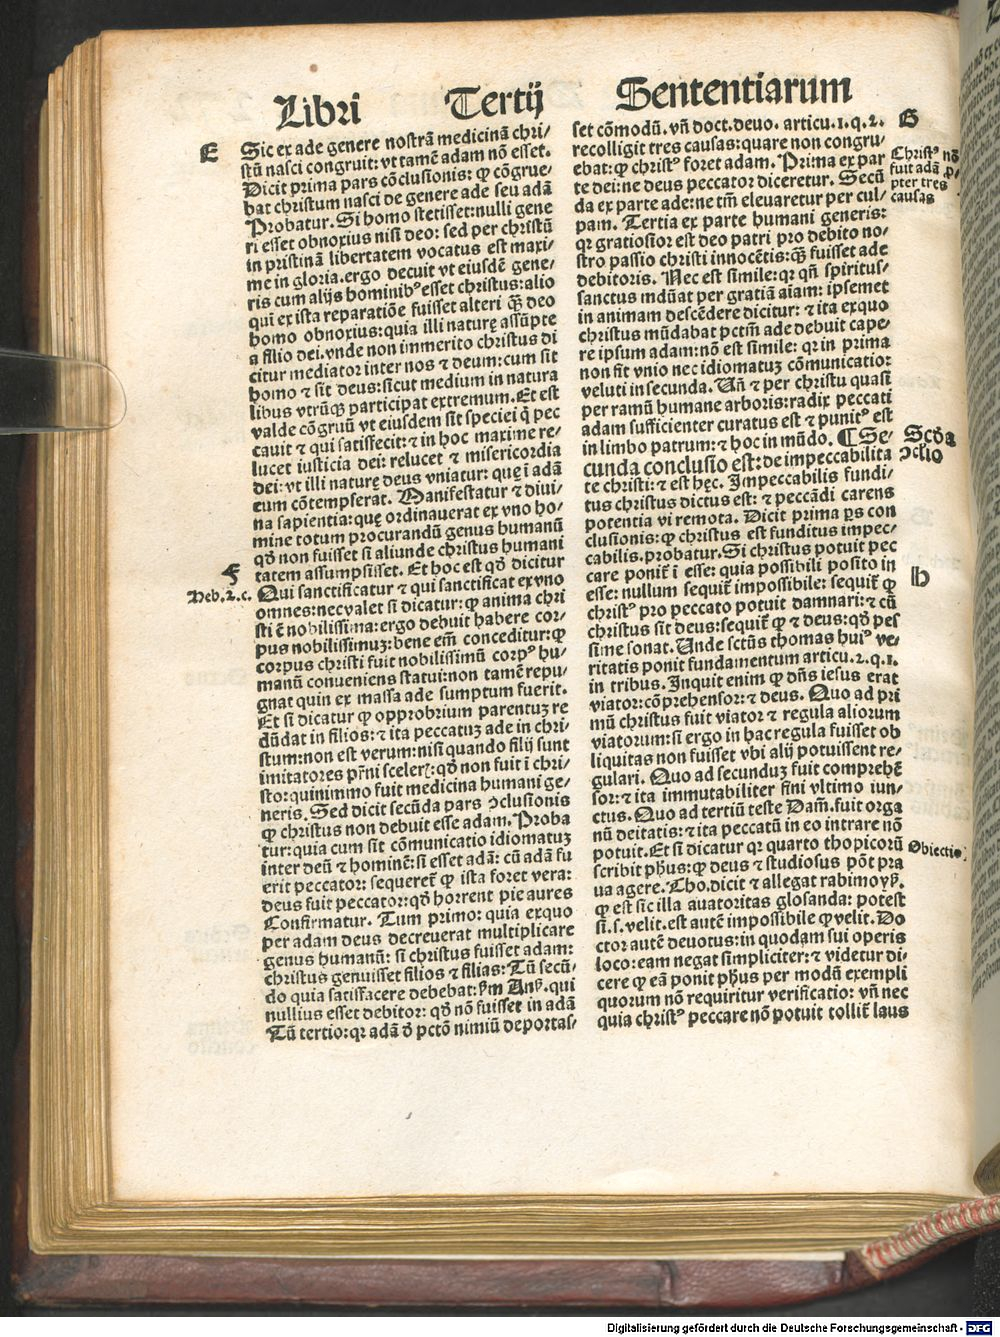 Libri Tertij Sententiarum
E
Sic ex ade genere nostrã medicinã chri/
stũ nasci congruit: vt tamẽ adam nõ esset.
Dicit prima pars cõclusionis: ꝙ cõgrue/
bat christum nasci de genere ade seu adã
Probatur. Si homo stetisset: nulli gene
ri esset obnoxius nisi deo: sed per christũ
in pristinã libertatem vocatus est maxi/
me in gloria. ergo decuit vt eiusdẽ gene/
ris cum alijs hominibꝰ esset christus: alio
qui ex ista reparatiõe fuisset alteri q̃ꝫ deo
homo obnoxius: quia illi naturę assũpte
a filio dei. vnde non immerito christus di
citur mediator inter nos ⁊ deum: cum sit
homo ⁊ sit deus: sicut medium in natura
libus vtrũqꝫ participat extremum. Et est
valde cõgruũ vt eiusdem sit speciei q̇ pec
cauit ⁊ qui satisfecit: ⁊ in hoc maxime re/
lucet iusticia dei: relucet ⁊ misericordia
dei: vt illi naturę deus vniatur: quę ĩ adã
eum cõtempserat. Manifestatur ⁊ diui/
na sapientia: quę ordinauerat ex vno ho/
mine totum procurandũ genus humanũ
qđ non fuisset si aliunde christus humani
F
tatem assumpsisset. Et hoc est qđ dicitur
Heb. 2. c.
Qui sanctificatur ⁊ qui sanctificat ex vno
omnes: nec valet si dicatur: ꝙ anima chri
sti ẽ nobilissima: ergo debuit habere cor/
pus nobilissimuꝫ: bene em̃ conceditur: ꝙ
corpus christi fuit nobilissimũ corpꝰ hu/
manũ conueniens statui: non tamẽ repu/
gnat quin ex massa ade sumptum fuerit.
Et si dicatur ꝙ opprobrium parentuꝫ re
dũdat in filios: ⁊ ita peccatuꝫ ade in chri/
stum: non est verum: nisi quando filij sunt
imitatores pr̃ni sceleris: qđ non fuit ĩ chri/
sto: quinimmo fuit medicina humani ge/
neris. Sed dicit secũda pars ɔclusionis
ꝙ christus non debuit esse adam. Proba
tur: quia cum sit cõmunicatio idiomatuꝫ
inter deũ ⁊ hominẽ: si esset adã: cũ adã fu
erit peccator: sequeret̃ ꝙ ista foret vera:
deus fuit peccator: qđ horrent pie aures
Confirmatur. Tum primo: quia exquo
per adam deus decreuerat multiplicare
genus humanũ: si christus fuisset adam:
christus genuisset filios ⁊ filias: Tũ secũ/
do quia satisfacere debebat: ẜm Anẜ. qui
nullius esset debitor: qđ nõ fuisset in adã
Tũ tertio: qꝛ adã ð pctõ nimiũ deportas/
set cõmodũ. vñ doct. deuo. articu. 1. q. 2.
G
recolligit tres causas: quare non congru/
ebat: ꝙ christꝰ foret adam. Prima ex par
te dei: ne deus peccator diceretur. Secũ
da ex parte ade: ne tm̃ eleuaretur per cul/
pam. Tertia ex parte humani generis:
Christꝰ nõ
fuit adã ꝓ/
pter tres
causas
qꝛ gratiosior est deo patri pro debito no/
stro passio christi innocẽtis: q̃ꝫ fuisset ade
debitoris. Nec est simile: qꝛ qñ spiritus/
sanctus mũdat per gratiã aĩam: ipsemet
in animam descẽdere dicitur: ⁊ ita exquo
christus mũdabat pctm̃ ade debuit cape/
re ipsum adam: nõ est simile: qꝛ in prima
non fit vnio nec idiomatuꝫ cõmunicatio:
veluti in secunda. Uñ ⁊ per christũ quasi
per ramũ humane arboris: radix peccati
adam sufficienter curatus est ⁊ punitꝰ est
in limbo patrum: ⁊ hoc in mũdo. ¶ Se/
Scða
ɔclio
cunda conclusio est: de impeccabilita
te christi: ⁊ est hęc. Impeccabilis fundi/
tus christus dictus est: ⁊ peccãdi carens
potentia vi remota. Dicit prima ꝑs con
clusionis: ꝙ christus est funditus impec/
cabilis. probatur. Si christus potuit pec
care ponit̃ ĩ esse: quia possibili posito in
H
esse: nullum sequit̃ impossibile: sequit̃ ꝙ
christꝰ pro peccato potuit damnari: ⁊ cũ
christus sit deus: sequit̃ ꝙ ⁊ deus: qđ pes
sime sonat. Unde sctũs thomas huiꝰ ve/
ritatis ponit fundamentum articu. 2. q. 1.
in tribus. Inquit enim ꝙ dñs iesus erat
viator: cõprehensor: ⁊ deus. Quo ad pri
mũ christus fuit viator ⁊ regula aliorum
viatorum: si ergo in hac regula fuisset ob
liquitas non fuisset vbi alij potuissent re/
gulari. Quo ad secunduꝫ fuit comprehẽ
sor: ⁊ ita immutabiliter fini vltimo iun/
ctus. Quo ad tertiũ teste Dam̃. fuit orga
nũ deitatis: ⁊ ita peccatũ in eo intrare nõ
potuit. Et si dicatur qꝛ quarto thopicorũ
Obiectio
scribit pħus: ꝙ deus ⁊ studiosus põt pra
ua agere. Tho. dicit ⁊ allegat rabimoyẜ.
ꝙ est sic illa auatoritas glosanda: potest
si. s. velit. est autẽ impossibile ꝙ velit. Do
ctor autẽ deuotus: in quodam sui operis
loco: eam negat simpliciter: ⁊ videtur di/
cere ꝙ eã ponit pħus per modũ exempli
quorum nõ requiritur verificatio: vñ nec
quia christꝰ peccare nõ potuit tollit̃ laus
Digitalisierung gefördert durch die Deutsche Forschungsgemeinschaft - DFG